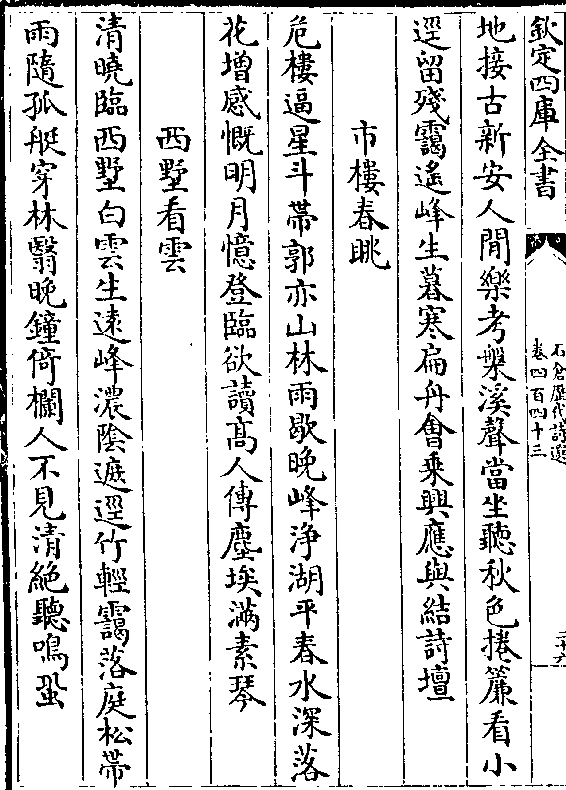 欽定四庫全書
石倉歷代詩選
卷四百四十三
二十六
地接古新安人閒樂考槃溪聲當坐聽秋色捲簾看小
逕留殘靄遙峰生暮寒扁舟會乗興應與結詩壇
市樓春眺
危樓逼星斗帶郭亦山林雨歇晚峰浄湖平春水深落
花增感慨明月憶登臨欲讀髙人傳塵埃滿素琴
西墅看雲
清曉臨西墅白雲生逺峰濃隂遮逕竹輕靄落庭松帶
雨隨孤艇穿林翳晩鐘倚欄人不見清絶聽鳴蛩